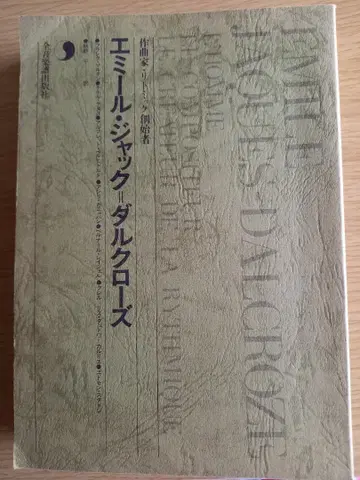 ÉMILE
JAQUES-DALCROZE
L'HOMME
LE COMPOSITEUR
LE CRÉATEUR DE LA RYTHMIQUE
作曲家・リトミック創始者
エミール・ジャック=ダルクローズ
全音楽譜出版社